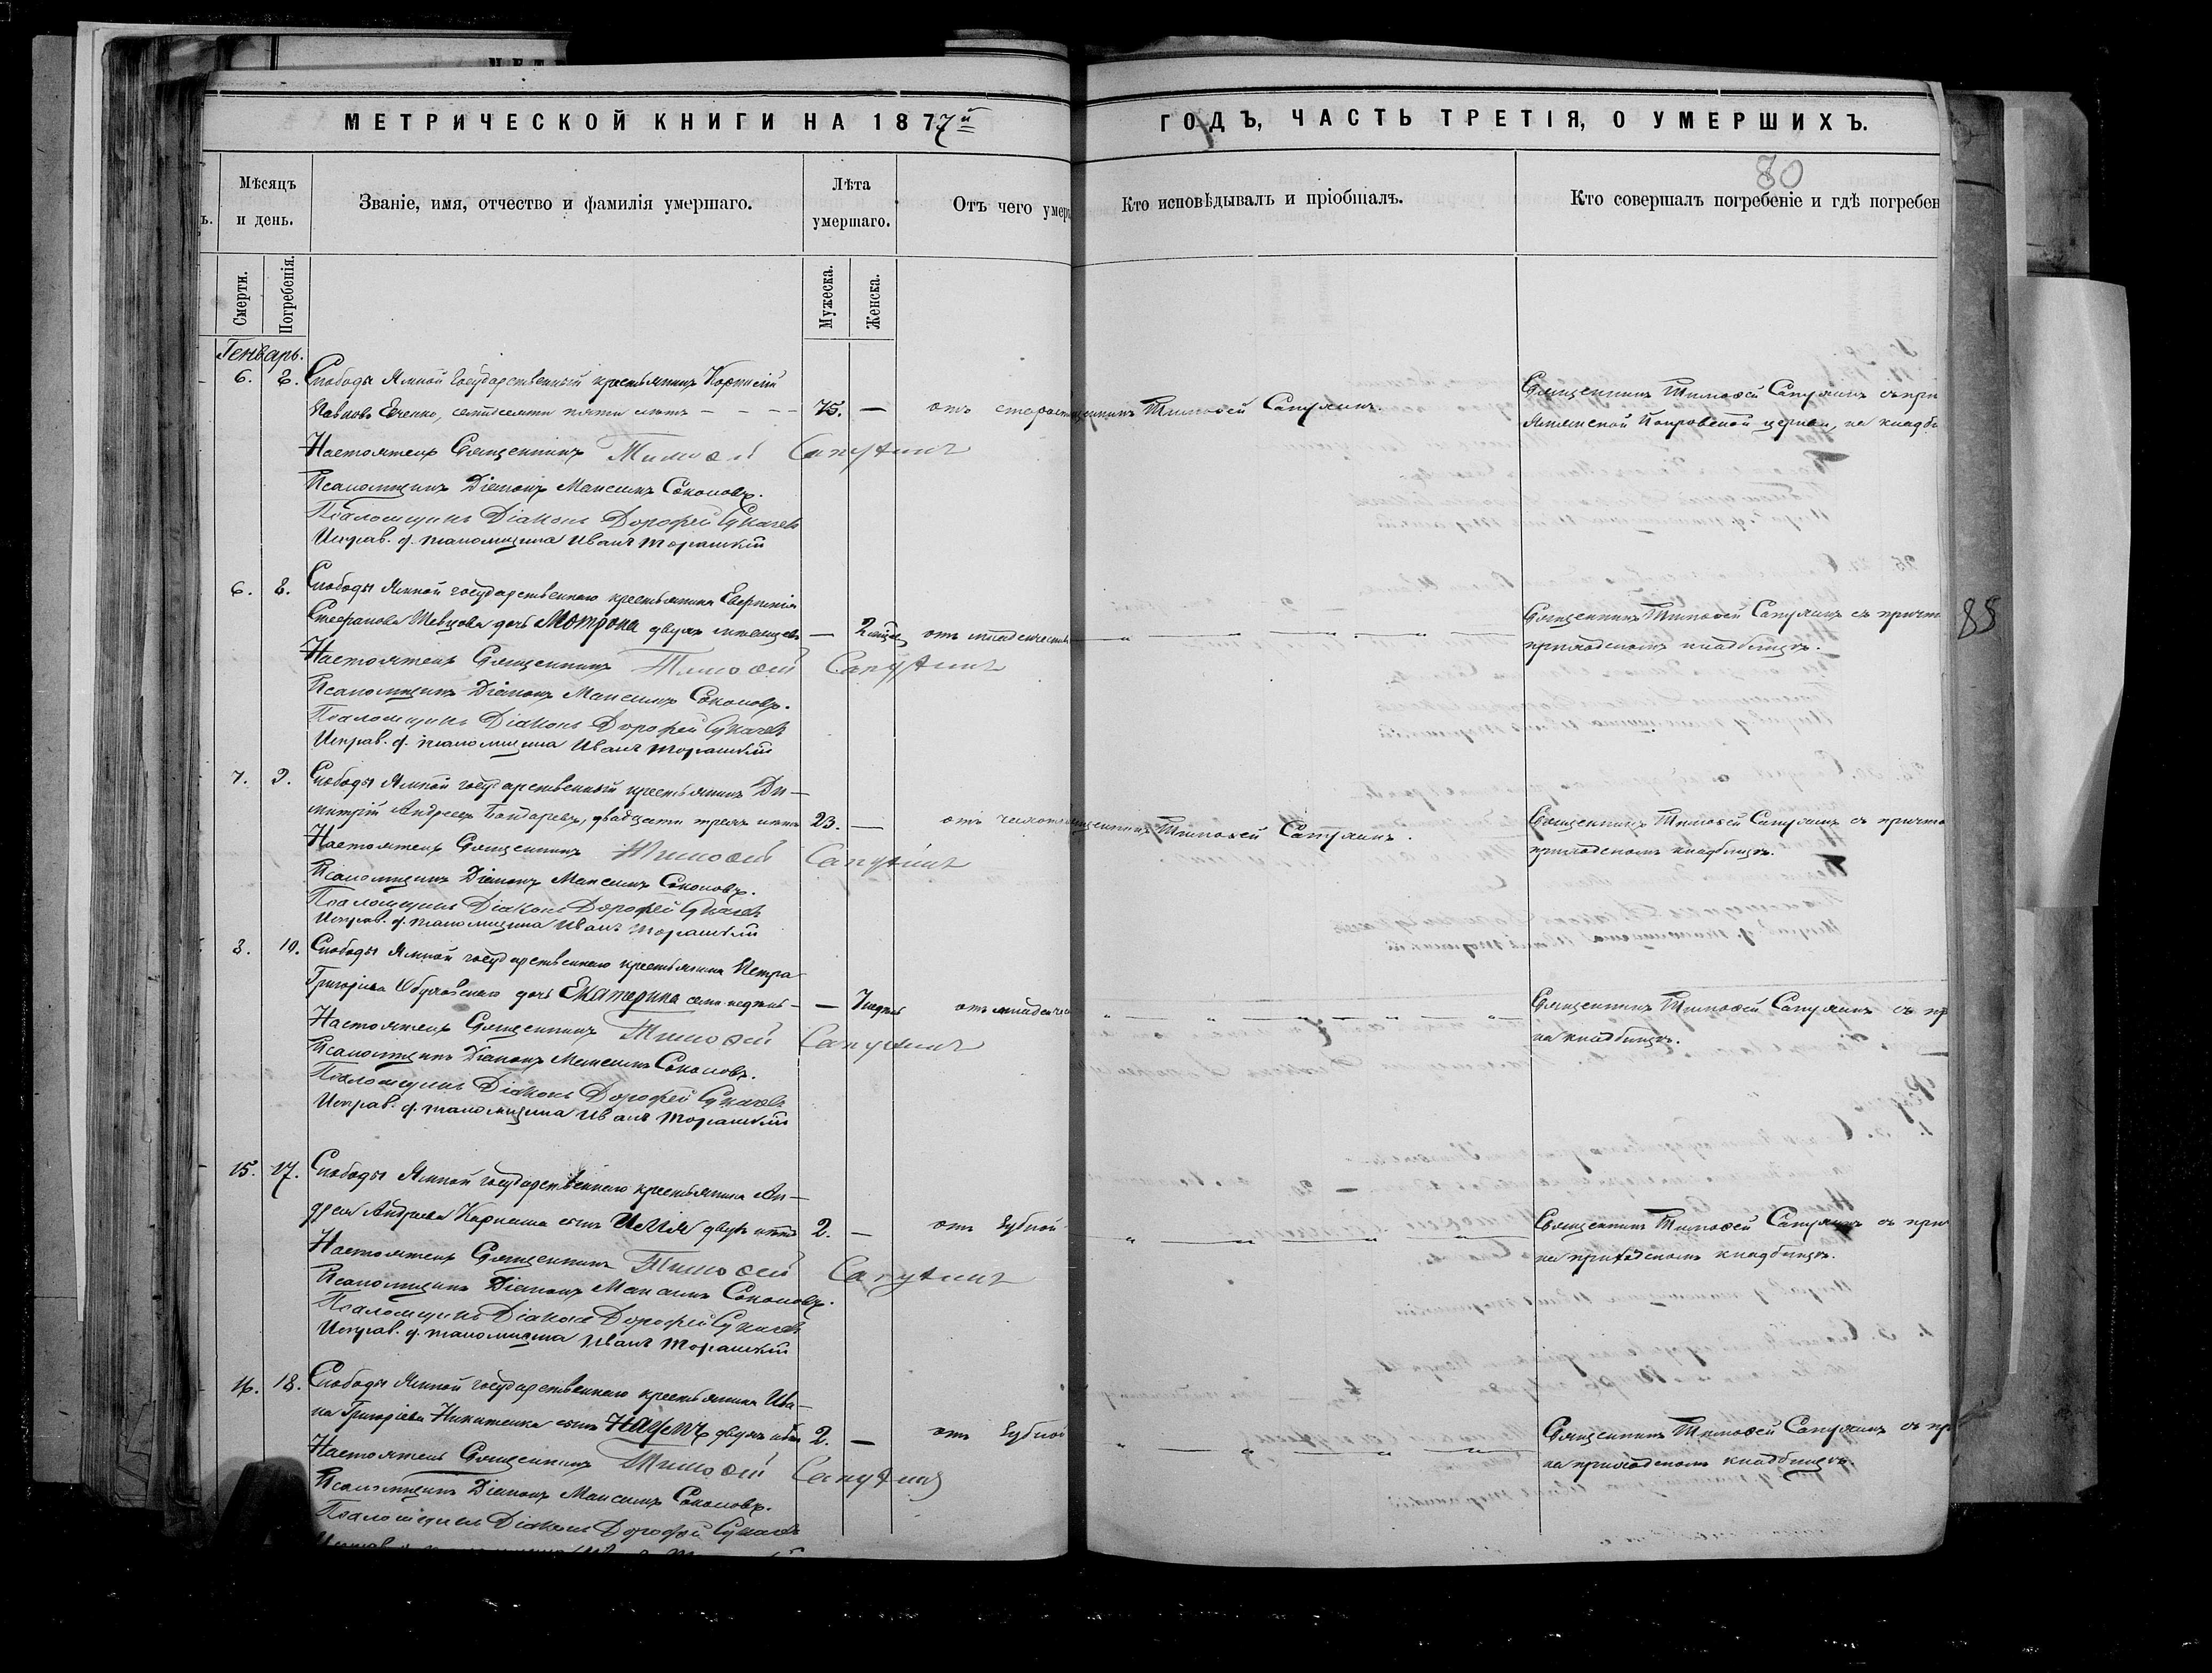 МЕТРИЧЕСКОЙ КНИГИ НА 1877й
Мѣсяцъ и день.
Званіе, имя, отчество и фамилія умершаго.
Лѣта умершаго.
Отъ чего умер
Смерти.
Погребенія.
Мужеска.
Женска.
Генварь.
6. 8. Слободы Ямной Государственный крестьянинъ Корнилій
Павловъ Евченко, семидесяти пяти лѣтъ – – – 75. — отъ старост
Настоятель Священникъ Тимоѳей Сапухинъ
Псаломщикъ Діаконъ Максимъ Соколовъ.
Псаломщикъ Діаконъ Дорофей Сукачевъ
Исправ. д. псаломщика Иванъ
6. 8. Слободы Ямной государственнаго крестьянина
Стефанова Шевцова дочь Мотрона двухъ мѣсяцевъ — 2 мѣся отъ младенчества
Настоятель Священникъ Тимоѳей Сапухинъ
Псаломщикъ Діаконъ Максимъ Соколовъ.
Псаломщикъ Діаконъ Дорофей Сукачевъ
Исправ. д. псаломщика Иванъ
7. 9. Слободы Ямной государственный крестьянинъ Ди–
митрій Андреевъ Бондаревъ, двадцати трехъ лѣтъ 23. — отъ чахот
Настоятель Священникъ Тимоѳей Сапухинъ
Псаломщикъ Діаконъ Максимъ Соколовъ.
Псаломщикъ Діаконъ Дорофей Сукачевъ
Исправ. д. псаломщика Иванъ
8. 10. Слободы Ямной государственнаго крестьянина Петра
Григорьева дочь Екатерина семи недѣль – — 7 недѣль отъ младенчес
Настоятель Священникъ Тимоѳей Сапухинъ
Псаломщикъ Діаконъ Максимъ Соколовъ.
Псаломщикъ Діаконъ Дорофей Сукачевъ
Исправ. д. псаломщика Иванъ
15. 17. Слободы Ямной государственнаго крестьянина Ан–
дрея Андреева сынъ Илія двухъ лѣтъ 2. — отъ зубной
Настоятель Священникъ Тимоѳей Сапухинъ
Псаломщикъ Діаконъ Максимъ Соколовъ.
Псаломщикъ Діаконъ Дорофей Сукачевъ
Исправ. д. псаломщика Иванъ
16. 18. Слободы Ямной государственнаго крестьянина Ива–
на Григорьева Никитенка сынъ двухъ лѣтъ 2. — отъ зубной
Настоятель Священникъ Тимоѳей Сапухинъ
Псаломщикъ Діаконъ Максимъ Соколовъ.
Псаломщикъ Діаконъ Дорофей Сукачевъ
ГОДЪ, ЧАСТЬ ТРЕТІЯ, О УМЕРШИХЪ.
80
Кто исповѣдывалъ и пріобщалъ.
Кто совершалъ погребеніе и гдѣ погребен
щенникъ Тимоѳей Сапухинъ.
Священникъ Тимоѳей Сапухинъ съ при
Ямянской Покровской церкви, на кладби
Священникъ Тимоѳей Сапухинъ съ причто
приходскомъ кладбищѣ.
85
щенникъ Тимоѳей Сапухинъ.
Священникъ Тимоѳей Сапухинъ съ причто
приходскомъ кладбищѣ.
Священникъ Тимоѳей Сапухинъ съ пр
на кладбищѣ.
Священникъ Тимоѳей Сапухинъ съ при
на приходскомъ кладбищѣ.
Священникъ Тимоѳей Сапухинъ съ пр
на приходскомъ кладбищѣ.